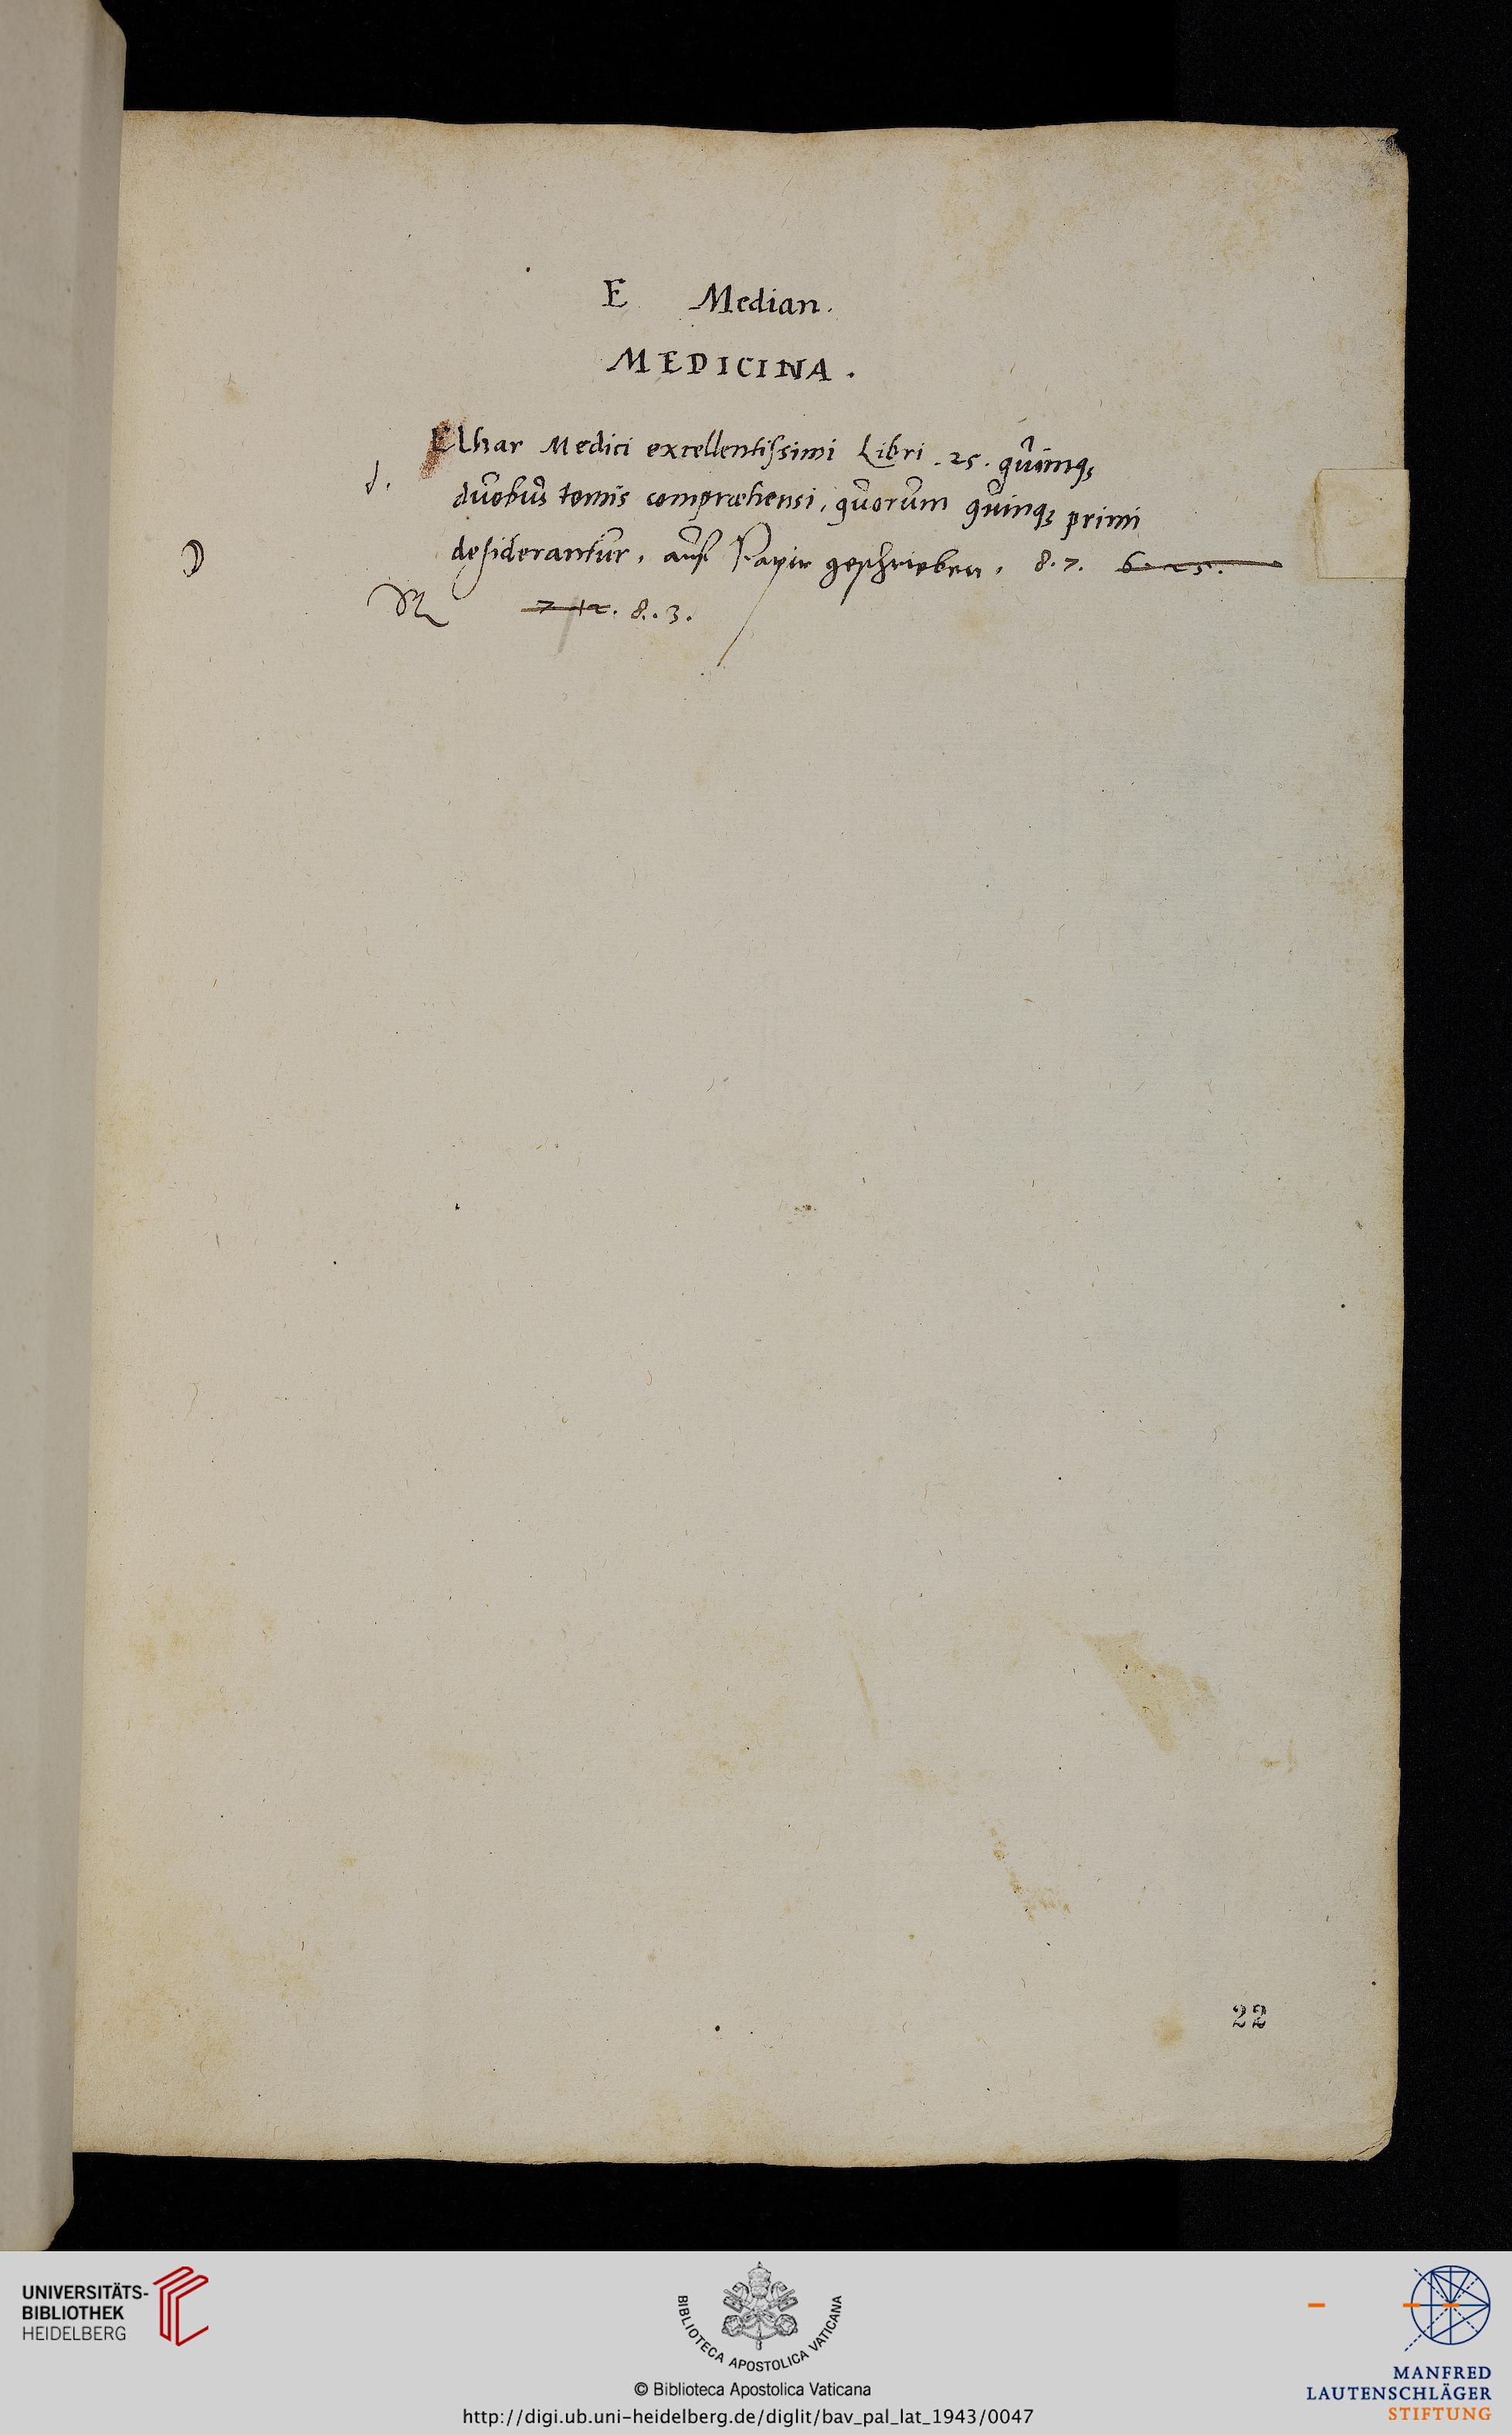 E Median.
MEDICINA.
Elhar Medici excellentissimi Libri .25. quinq₃
d.
duobus tomis compræhensi, quorum quinq₃ primi
desiderantur. auf Papir geschrieben. 8.7. 6. 25.
D
7 12. 8..3.
22
UNIVERSITÄTS-
BIBLIOTHEK
HEIDELBERG
BIBLIOTECA APOSTOLICA VATICANA
© Biblioteca Apostolica Vaticana
http://digi.ub.uni-heidelberg.de/diglit/bav_pal_lat_1943/0047
MANFRED
LAUTENSCHLÄGER
STIFTUNG